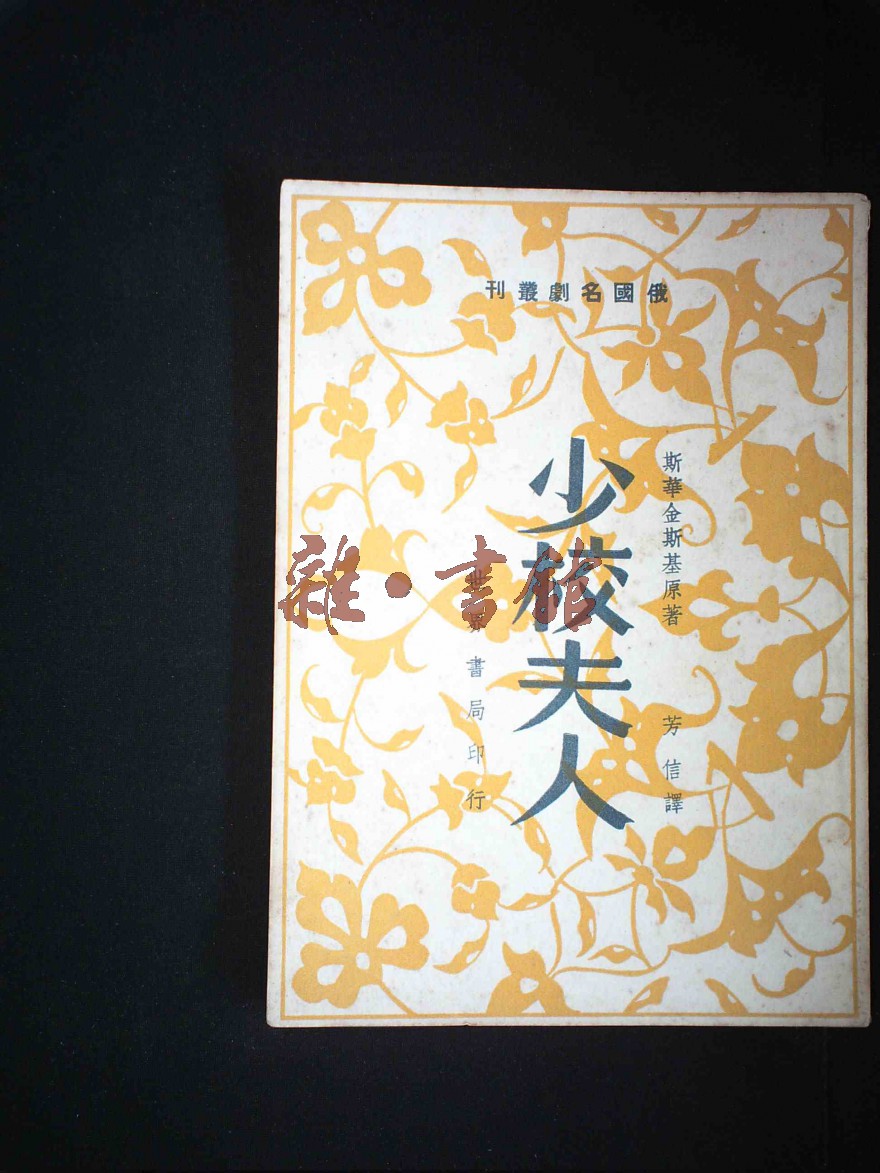 俄國名劇叢刊
斯華金斯基原著
芳信譯
少校夫人
世界書局印行
雜·書館